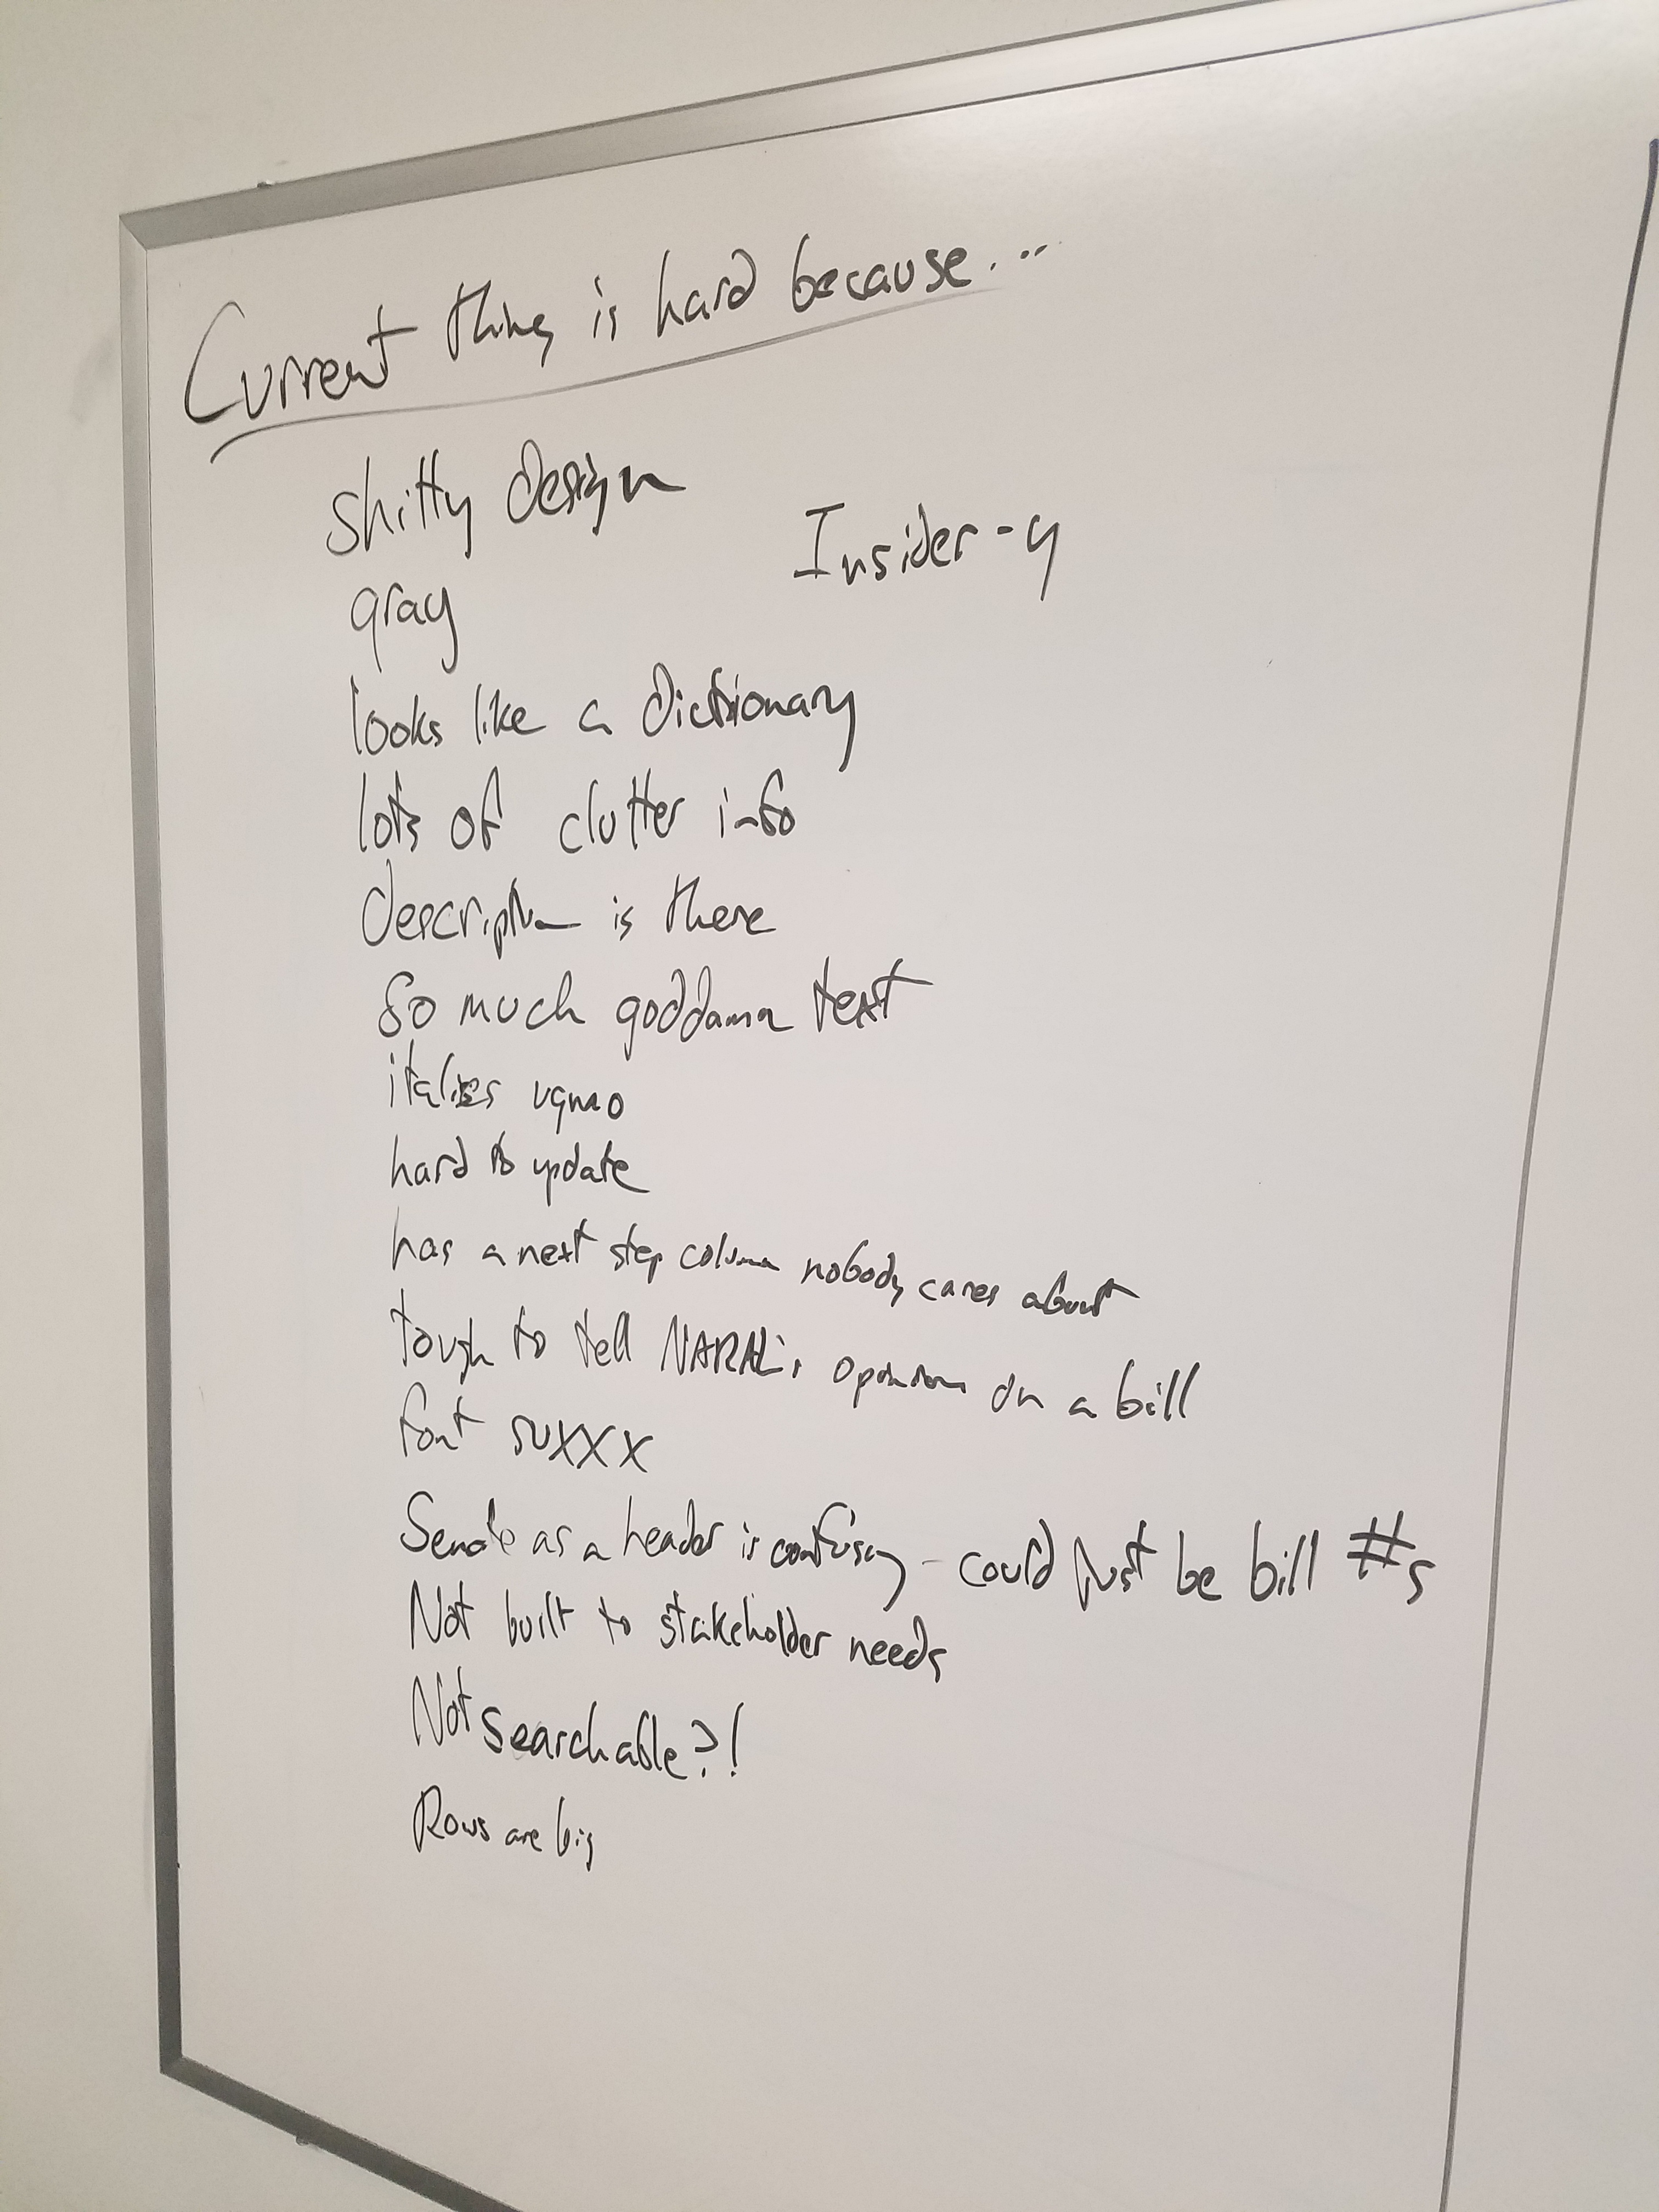 Current thing is hard because...
shitty design
Insider-y
gray
looks like a dictionary
lots of clutter info
description is there
so much goddamn text
italics
hard to update
has a next step column nobody cares about
tough to tell NARAL's opinion on a bill
font suxxx
Senate as a header is confusing - could just be bill #s
Not built to stakeholder needs
Not searchable?!
Rows are big